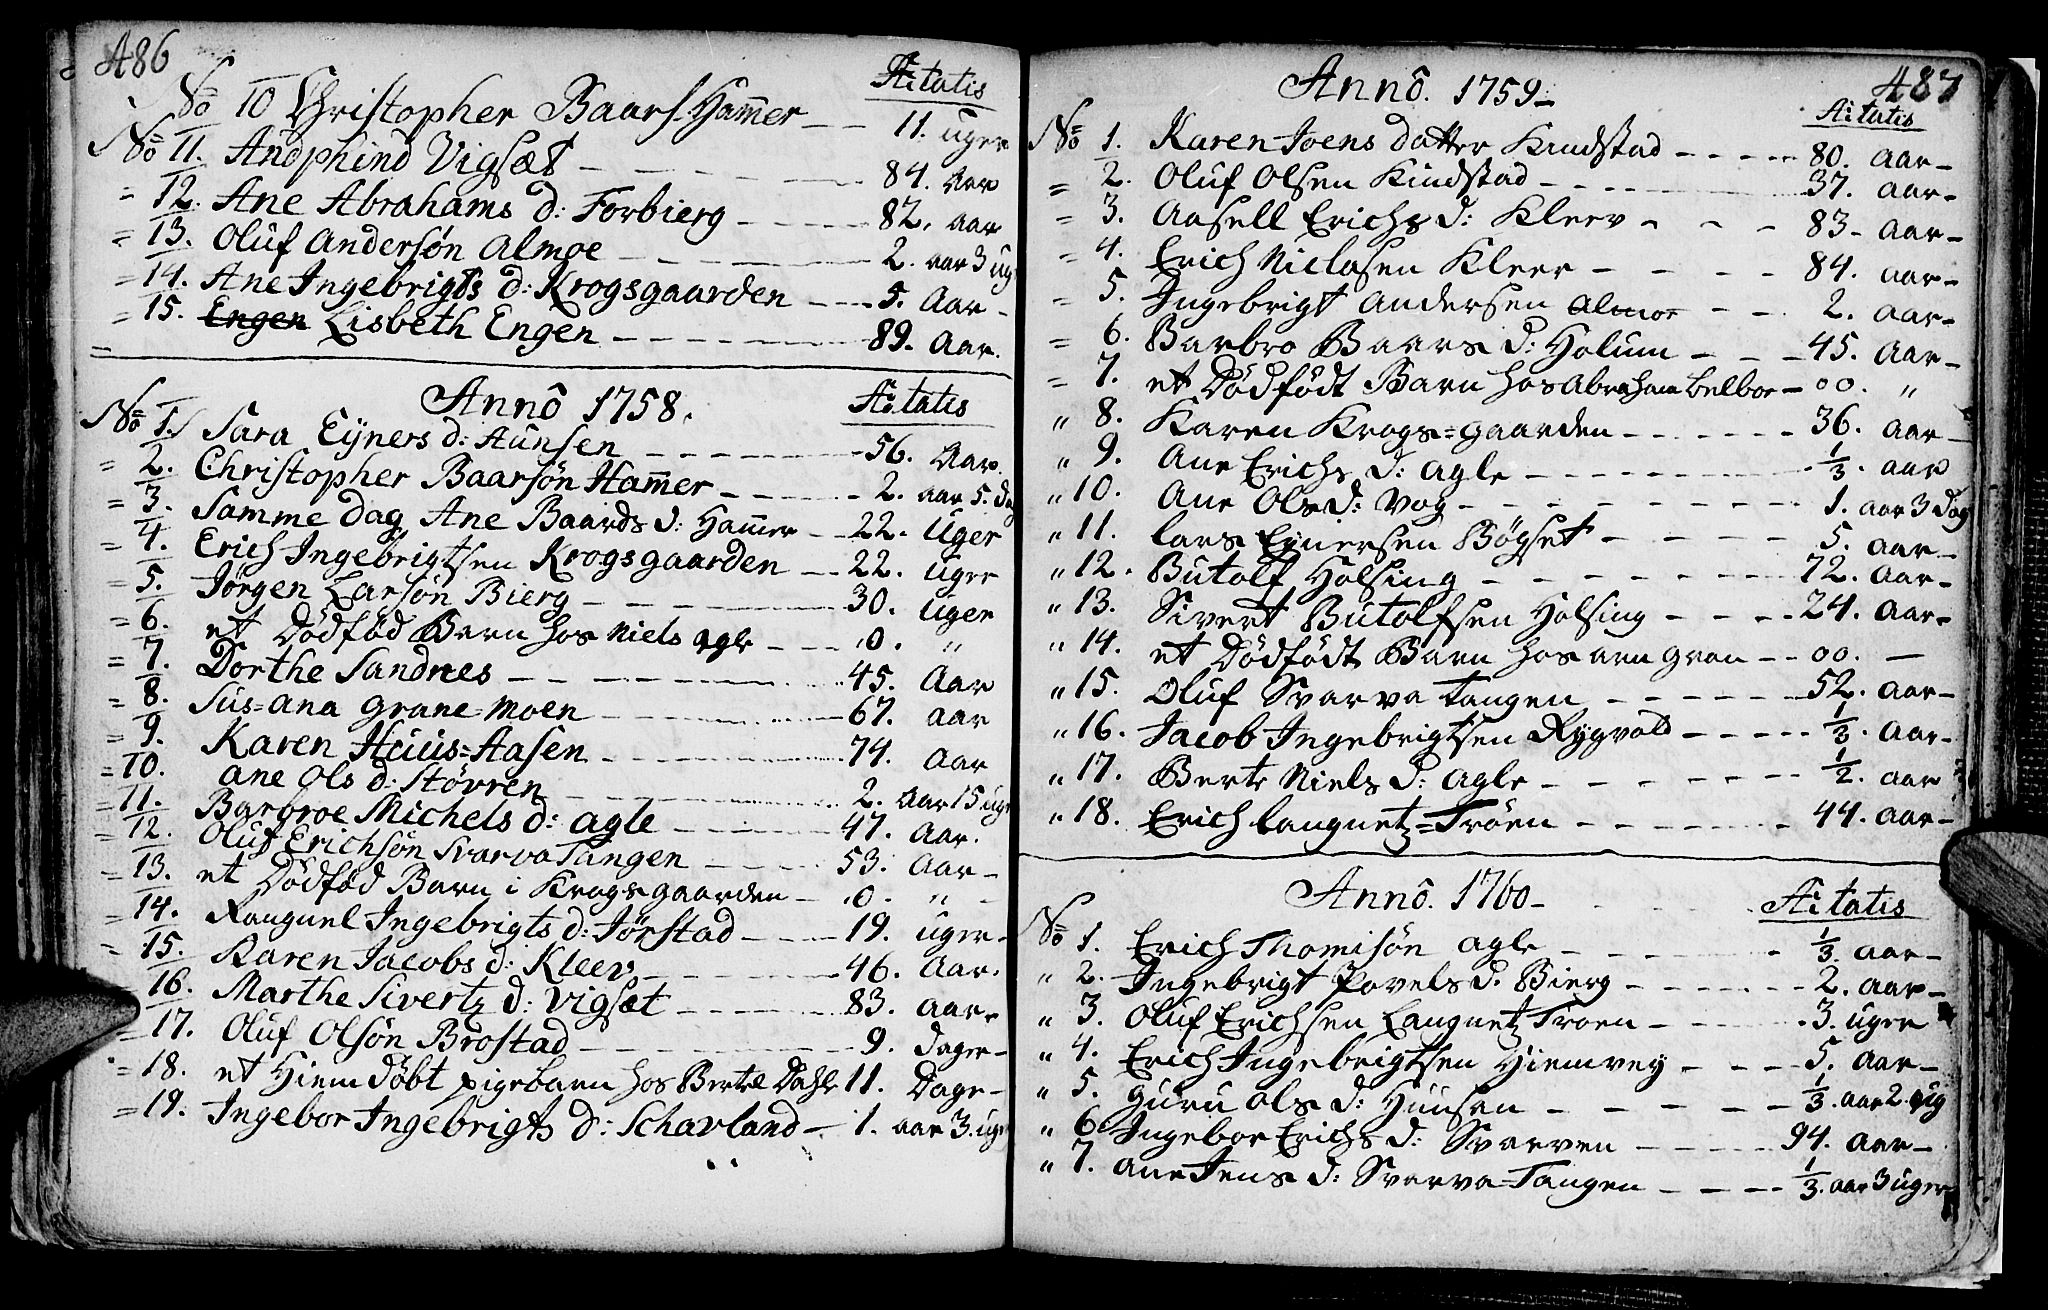 486
Ætatis
No 10 Christopher Baars. Hamer - - 11. uger
No 11. Andphind Vigsæt - - - - - - 84. Aar
= 12. Ane Abrahams d: Forbierg - - - - - 82. aar
= 13. Oluf Andersøn Almoe - - - - - 2. aar 3 ug
= 14. Ane Ingebrigts d: Krogsgaarden - - - 5. Aar -
= 15. Engen Lisbeth Engen - - - - - - 89. Aar.
Annô 1758. Ætatis
No 1. Sara Eyners d: Aunsen - - - - - 56. Aar.
= 2. Christopher Baarsøn Hamer - - - - - 2. aar 5. dag
= 3. Samme Dag Ane Baards d: Hamer - - 22. Uger
= 4. Erich Ingebrigtsen Krogsgaarden - - 22. uger
= 5. Jørgen Larsøn Bierg - - - - - 30. uger
= 6. et Dødfød Barn hos Niels agle - - - 0. "
= 7. Dorthe Sandnes - - - - - 45. Aar
= 8. Sus=ana Grane=moen - - - - - 67. aar
= 9. Karen Huus=Aasen - - - - - 74. Aar
= 10. Ane Ols d: Støvren - - - - - 2. Aar 15 ug
= 11. Barbroe Michels d: agle - - - - - 47. Aar.
= 12. Oluf Erichsøn Svarva Tangen - - - - 53. Aar -
= 13. et Dødfød Barn i Krogsgaarden - 0. " -
= 14. Ranguel Ingebrigts d: Jørstad - - - - 19. uger -
= 15. Karen Jacobs d: Kleev - - - - - 46. Aar.
= 16. Marthe Sivertz d: Vigsæt - - - - - 83. aar.
= 17. Oluf Olsøn Brøstad - - - - - 9. dager -
= 18. et Hiem døbt pigebarn hos Bertel Dahle 11. Dage -
= 19. Ingebor Ingebrigts d: Schavland - 1. aar 3. ug
487
Annô. 1759 -
Ætatis
No 1. Karen Joens datter Kindstad - - - - 80. Aar -
= 2. Oluf Olsen Kindstad - - - - - 37. aar -
= 3. Aasell Erichs d: Kleev - - - 83 - Aar -
= 4. Erich Niclasen Kleev - - - - 84. aar -
= 5. Ingebrigt Andersen Almoe - - 2. aar -
= 6. Barbro Baars d: Holum - - - 45. Aar -
= 7. et Dødfødt Barn hos Abraham Belboe - 00. "
" 8. Karen Krogs=gaarden - - - - - 36. aar -
" 9. Ane Erichs d: agle - - - - - 1/3. aar
" 10. Ane Ols d: Vog - - - - - 1. aar 3 dag
" 11. Lars Eynersen Bøgset - - - - 5. aar -
" 12. Butolf Holsing - - - - - 72. aar -
" 13. Sivert Butolfsen Holsing - - - - 24. Aar -
" 14. et Dødfødt Barn hos arn gran - - 00. -
" 15. Oluf Svarva Tangen - - - - - 52. aar -
" 16. Jacob Ingebrigtsen Rygvold - - - - - 1/3. Aar -
" 17. Berte Niels d: agle - - - - - 1/2. aar
" 18. Erich Langnetz=Trøen - - - - - 44. aar -
Annô. 1760 - Ætatis
No 1. Erich Thomisøn agle - - - - - 1/3. aar -
" 2. Ingebrigt Povels d. Bierg - - - - - 2. aar -
" 3. Oluf Erichsen Langnetz Troen - - - - 3. uger
" 4. Erich Ingebrigtsen Hiemvey - - - - 5. Aar -
" 5. Guru Ols d: Huusen - - - - - 1/3. aar 2. ug
" 6. Ingebor Erichs d: Svarven - - - - - 94. aar -
" 7. Ane Jens d: Svarva=Tangen - - - - 1/3. aar 3 uger